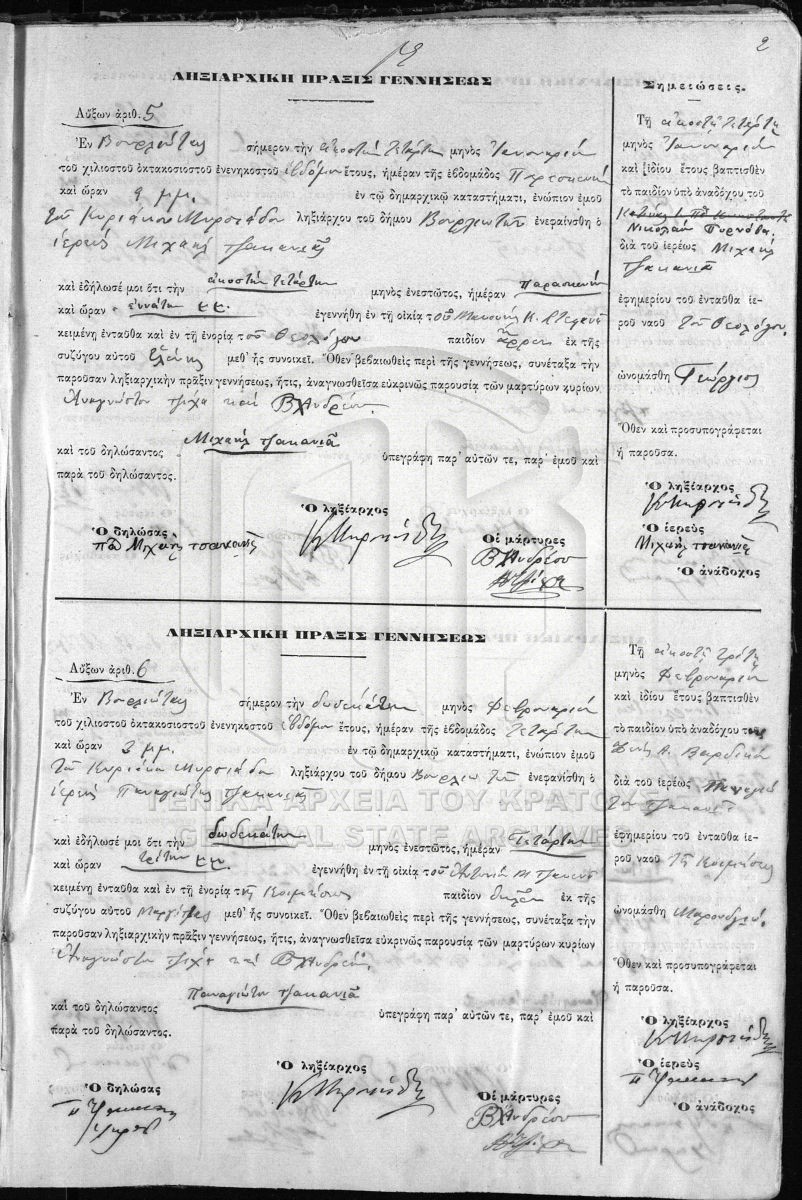 2
ΛΗΞΙΑΡΧΙΚΗ ΠΡΑΞΙΣ ΓΕΝΝΗΣΕΩΣ
Αὔξων ἀριθ. 5
Ἐν Βουρλιώταις σήμερον τὴν εἰκοστὴν τετάρτην μηνὸς Ἰανουαρίου
τοῦ χιλιοστοῦ ὀκτακοσιοστοῦ ἐνενηκοστοῦ ἑβδόμου ἔτους, ἡμέραν τῆς ἑβδομάδος Παρασκευὴν
καὶ ὥραν 9 μμ. ἐν τῷ δημαρχικῷ καταστήματι, ἐνώπιον ἐμοῦ
τοῦ Κυριάκου Μυρσιάδου ληξιάρχου τοῦ δήμου Βουρλιωτῶν ἐνεφανίσθη ὁ
ἱερεὺς Μιχαὴλ Τσακανιᾶς
καὶ ἐδήλωσέ μοι ὅτι τὴν εἰκοστὴν τετάρτην μηνὸς ἐνεστῶτος, ἡμέραν Παρασκευὴν
καὶ ὥραν ἐννάτην ἐγεννήθη ἐν τῇ οἰκίᾳ τοῦ Μανουὴλ Κ. Στεφανῆ
κειμένῃ ἐνταῦθα καὶ ἐν τῇ ἐνορίᾳ τοῦ Θεολόγου παιδίον ἄρρεν ἐκ τῆς
συζύγου αὐτοῦ Ἑλένης μεθ' ἧς συνοικεῖ. Ὅθεν βεβαιωθεὶς περὶ τῆς γεννήσεως, συνέταξα τὴν
παροῦσαν ληξιαρχικὴν πρᾶξιν γεννήσεως, ἥτις, ἀναγνωσθεῖσα εὐκρινῶς παρουσίᾳ τῶν μαρτύρων κυρίων
Ἀναγνώστου καὶ Β Ἀνδρέου.
καὶ τοῦ δηλώσαντος Μιχαὴλ Τσακανιᾶ ὑπεγράφη παρ' αὐτῶν τε, παρ' ἐμοῦ καὶ
παρὰ τοῦ δηλώσαντος.
Ὁ δηλώσας
Μιχαὴλ τσακανιᾶς
Ὁ ληξίαρχος
Κ Μυρσιάδης
Οἱ μάρτυρες
Β Ἀνδρέου
Σημειώσεις.
Τῇ εἰκοστῇ τετάρτῃ
μηνὸς Ἰανουαρίου
καὶ ἰδίου ἔτους βαπτισθὲν
τὸ παιδίον ὑπὸ ἀναδόχου τοῦ
Νικολάου
διὰ τοῦ ἱερέως Μιχαὴλ
Τσακανιᾶ
ἐφημερίου τοῦ ἐνταῦθα ἱε-
ροῦ ναοῦ τοῦ Θεολόγου
ὠνομάσθη Γεώργιος
Ὅθεν καὶ προσυπογράφεται
ἡ παροῦσα.
Ὁ ληξίαρχος
Κ Μυρσιάδης
Ὁ ἱερεὺς
Μιχαὴλ τσακανιᾶς
Ὁ ἀνάδοχος
ΛΗΞΙΑΡΧΙΚΗ ΠΡΑΞΙΣ ΓΕΝΝΗΣΕΩΣ
Αὔξων ἀριθ. 6
Ἐν Βουρλιώταις σήμερον τὴν δωδεκάτην μηνὸς Φεβρουαρίου
τοῦ χιλιοστοῦ ὀκτακοσιοστοῦ ἐνενηκοστοῦ ἑβδόμου ἔτους, ἡμέραν τῆς ἑβδομάδος Τετάρτην
καὶ ὥραν 3 μμ. ἐν τῷ δημαρχικῷ καταστήματι, ἐνώπιον ἐμοῦ
τοῦ Κυριάκου Μυρσιάδου ληξιάρχου τοῦ δήμου Βουρλιωτῶν ἐνεφανίσθη ὁ
ἱερεὺς Παναγιώτης Τσακανιᾶς
ΓΕΝΙΚΑ ΑΡΧΕΙΑ ΤΟΥ ΚΡΑΤΟΥΣ
GENERAL STATE ARCHIVES
καὶ ἐδήλωσέ μοι ὅτι τὴν δωδεκάτην μηνὸς ἐνεστῶτος, ἡμέραν Τετάρτην
καὶ ὥραν τρίτην ἐγεννήθη ἐν τῇ οἰκίᾳ τοῦ
κειμένῃ ἐνταῦθα καὶ ἐν τῇ ἐνορίᾳ τῆς Κοιμήσεως παιδίον θῆλυ ἐκ τῆς
συζύγου αὐτοῦ μεθ' ἧς συνοικεῖ. Ὅθεν βεβαιωθεὶς περὶ τῆς γεννήσεως, συνέταξα τὴν
παροῦσαν ληξιαρχικὴν πρᾶξιν γεννήσεως, ἥτις, ἀναγνωσθεῖσα εὐκρινῶς παρουσίᾳ τῶν μαρτύρων κυρίων
Ἀναγνώστου καὶ Β Ἀνδρέου.
καὶ τοῦ δηλώσαντος Παναγιώτου Τσακανιᾶ ὑπεγράφη παρ' αὐτῶν τε, παρ' ἐμοῦ καὶ
παρὰ τοῦ δηλώσαντος.
Ὁ δηλώσας
Ὁ ληξίαρχος
Κ Μυρσιάδης
Οἱ μάρτυρες
Β Ἀνδρέου
Τῇ εἰκοστῇ τρίτῃ
μηνὸς Φεβρουαρίου
καὶ ἰδίου ἔτους βαπτισθὲν
τὸ παιδίον ὑπὸ ἀναδόχου
διὰ τοῦ ἱερέως
ἐφημερίου τοῦ ἐνταῦθα ἱε-
ροῦ ναοῦ τῆς Κοιμήσεως
ὠνομάσθη
Ὅθεν καὶ προσυπογράφεται
ἡ παροῦσα.
Ὁ ληξίαρχος
Κ Μυρσιάδης
Ὁ ἱερεὺς
Ὁ ἀνάδοχος